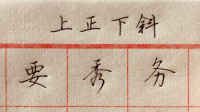 上正下斜
要秀务